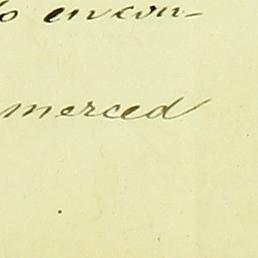 o encon-
merced